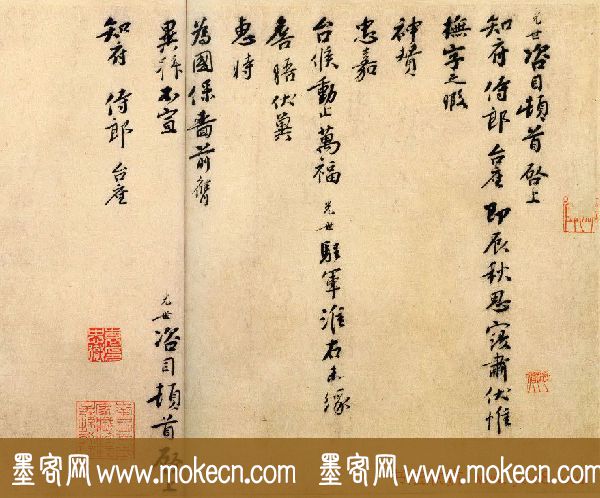 光世咨目頓首啓上
知府侍郎台座即辰秋思寖肅伏惟
撫字之暇
神贊
忠嘉
台候動止萬福光世駐軍淮右未緣
晤伏冀
惠時
為國保嗇前膺
異拜不宣
光世咨目頓首啓上
知府侍郎台座
墨客网 www.mokecn.com 墨客网 www.mokecn.com